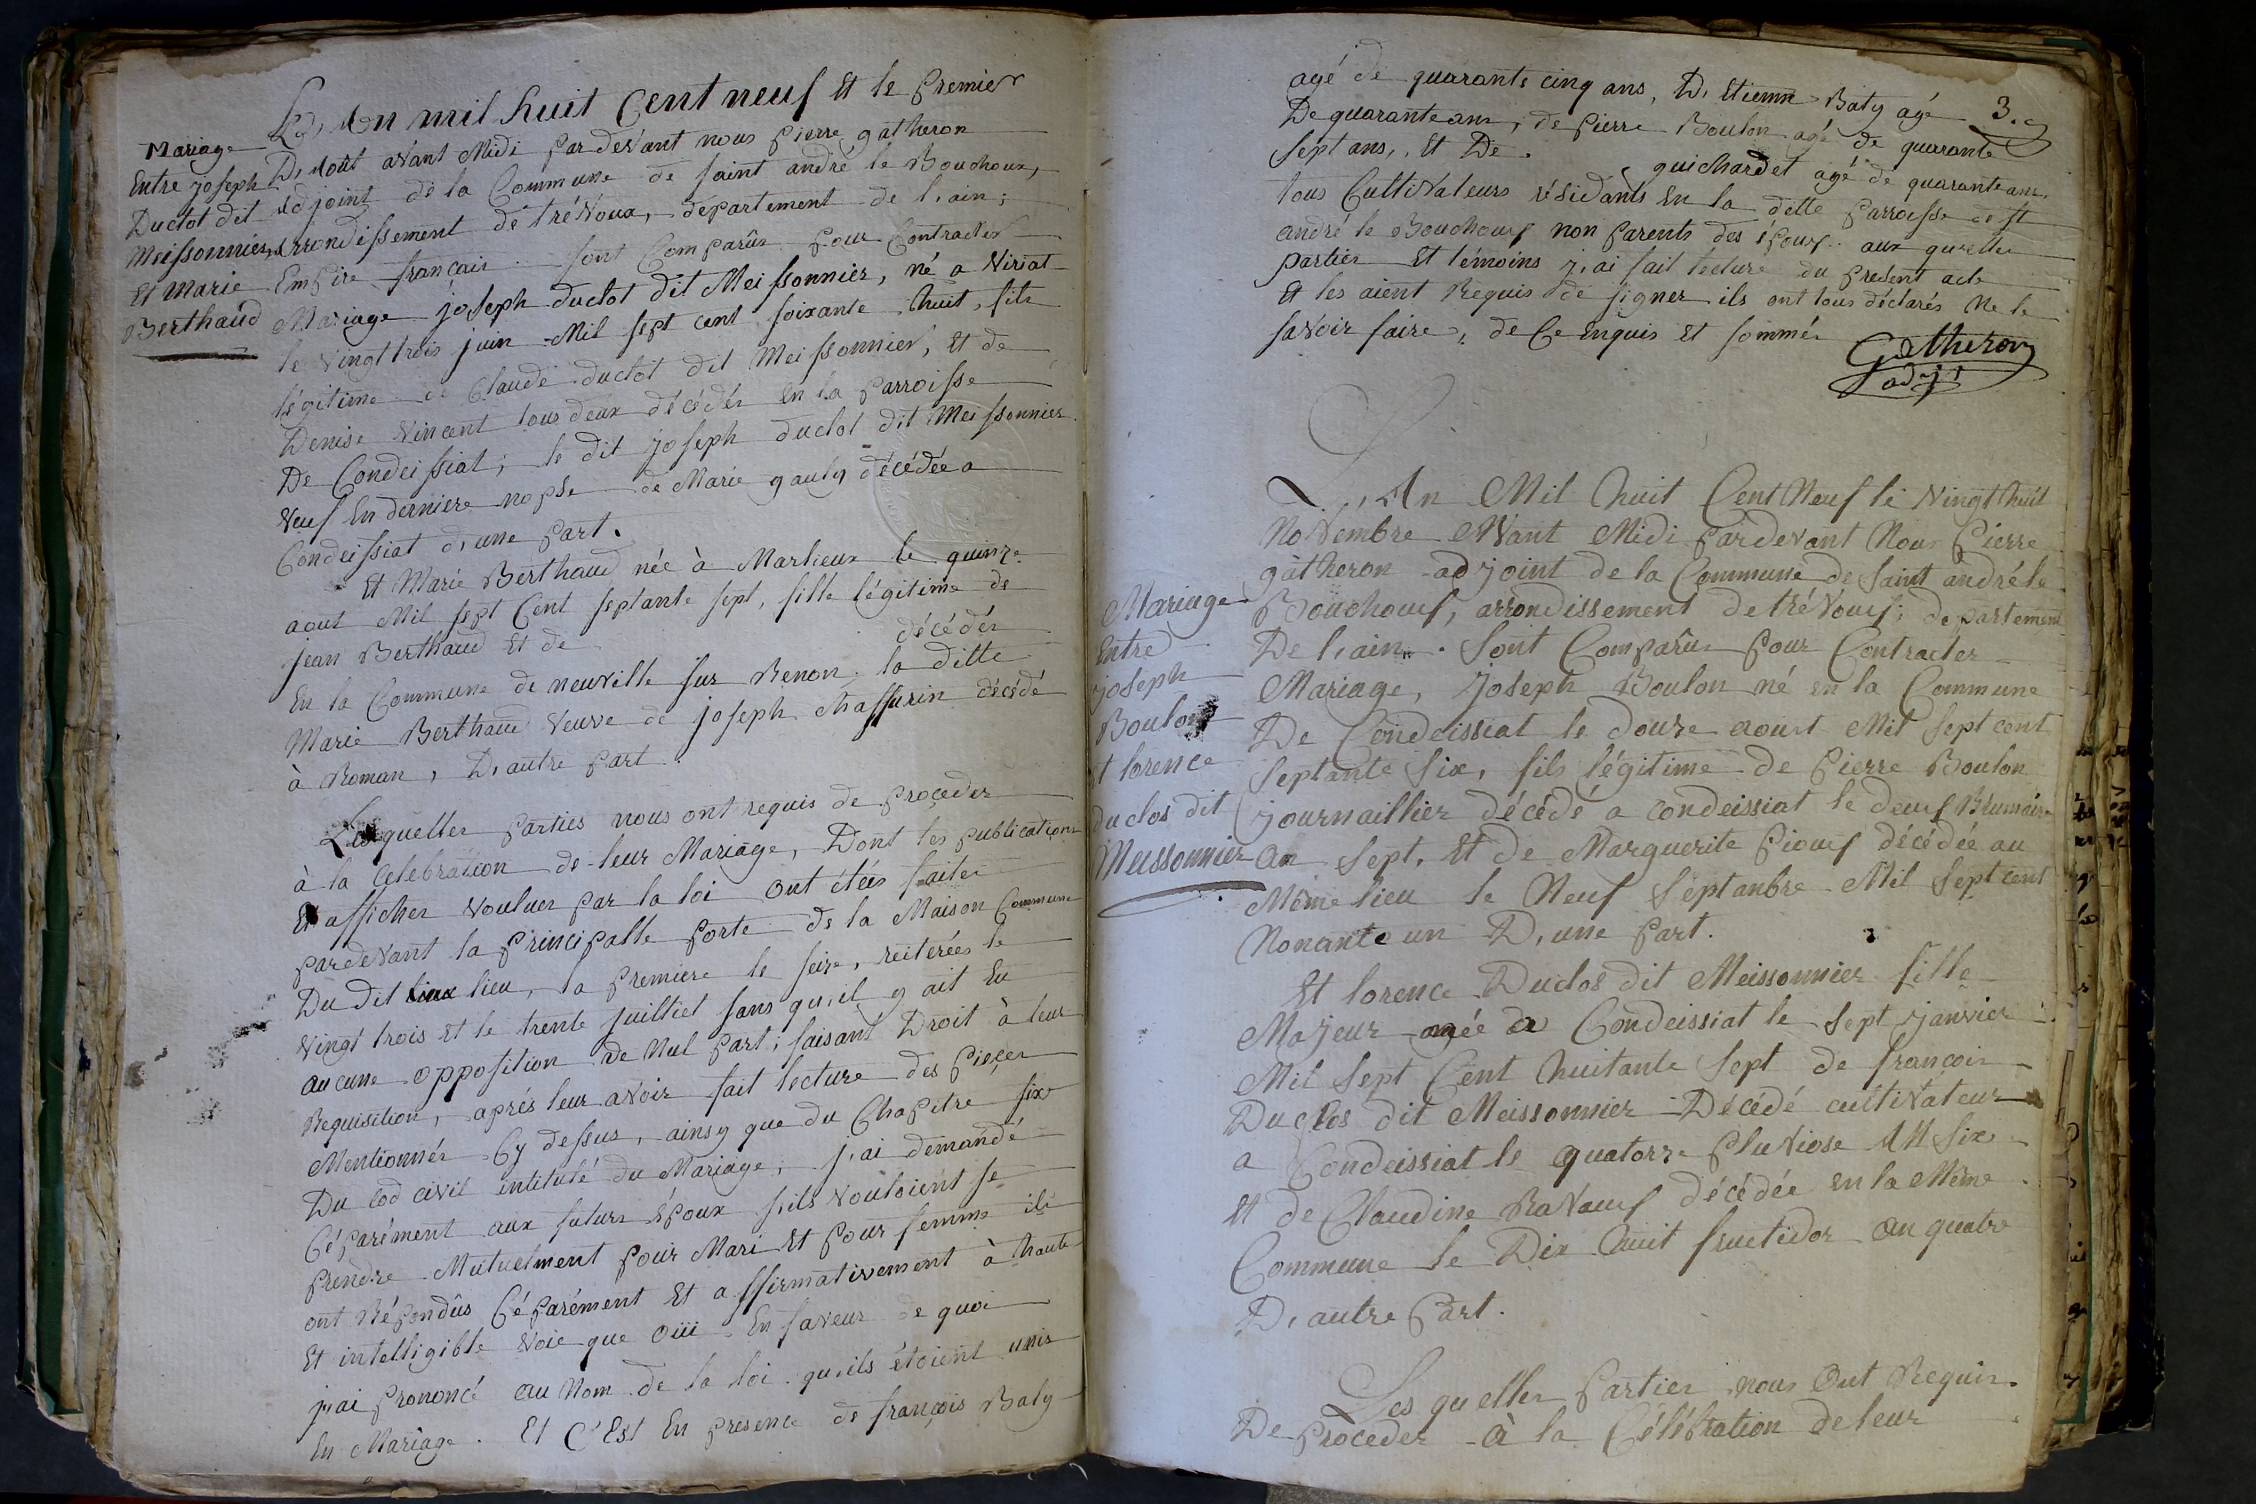 L'An mil huit Cent neuf Et le premier
Mariage
Entre joseph
Duclot dit
Meissonnier
Et Marie
Berthaud
D'aout avant Midi pardevant nous pierre gatheron
adjoint de la Commune de saint andré le Bouchoux,
arrondissement de trévoux, departement de l'ain;
Empire français. sont Comparûs pour Contracter
Mariage joseph duclot dit Meissonnier, né a Viriat
le vingt trois juin Mil sept cent soixante huit, fils
légitime de Claude duclot dit Meissonnier, Et de
Denise Vincent tous deux décédés en la parroisse
De Condeissiat; le dit joseph duclot dit Meissonnier
veuf En derniere nopse de Marie gauly décédée a
Condeissiat d'une part.
Et Marie Berthaud née à Marlieux le quinze
aout Mil sept Cent septante sept, fille légitime de
jean Berthaud Et de décédés
En la Commune de neuville sur Renon, la ditte
Marie Berthaud Veuve de joseph chassurin décédé
à Roman, D'autre part.
Lesquelles parties nous ont requis de proceder
à la Celebration de leur Mariage, Dont les publications
Et affiches voulues par la loi ont étées faites
pardevant la principalle porte de la Maison Commune
Du dit lieu, la premiere le seize, reiterées le
vingt trois et le trente juilliet sans qu'il y ait Eu
aucune opposition de Nul part; faisant Droit à leur
Requisition, aprés leur avoir fait lecture des pieçes
Mentionnés Cy dessus, ainsy que du Chapitre six
Du cod civil intitulé du Mariage, j'ai demandé
Céparément aux futurs époux s'ils vouloient se
prendre Mutuelment pour Mari Et pour femme ils
ont Répondûs Céparément Et affirmativement à haute
Et intelligible voie que Oüi. En faveur de quoi
j'ai prononcé au Nom de la loi qu'ils étoient unis
En Mariage. Et C'Est En presence de françois Baty
3.
agé de quarante cinq ans, D'Etienne Baty agé
De quarante ans, de pierre Boulon agé de quarante
sept ans, Et De guichardet agé de quarante ans
tous Cultivateurs résidants En la ditte parroisse de st
andré le Bouchoux non parents des époux. aux quelles
parties Et témoins j'ai fait lecture du present acte
Et les aient Requis de signer ils ont tous déclarés Ne le
savoir faire, de Ce enquis Et sommés
Gatheron
adjt
L'An Mil huit Cent Neuf le vingt huit
Novembre Avant Midi pardevant Nous Pierre
gâtheron adjoint de la Commune de Saint andré le
Bouchoux, arrondissement de trévoux; departement
De l'ain. Sont Comparûs pour Contracter
Mariage
Entre
joseph
Boulon
Et lorence
duclos dit
Meissonnier
Mariage, joseph Boulon né en la Commune
De Condeissiat le douze aoust Mil Sept cent
Septante Six, fils légitime de Pierre Boulon
journaillier décédé a condeissiat le deux Brumaire
an sept, Et de Marguerite Pioux décédée au
Même lieu le Neuf Septanbre Mil Sept cent
Nonante un D'une part.
Et lorence Duclos dit Meissonnier fille
Majeur agée de Condeissiat le Sept janvier
Mil Sept Cent huitante Sept de françois
Duclos dit Meissonnier Décédé cultivateur
a Condeissiat le quatorze pluviose AN Six
Et de Claudine Ravoux décédée en la Même
Commune le Dix huit fructidor an quatre
D'autre Part.
Les quelles Parties nous Ont Requis
De Proceder à la Célébration de leur